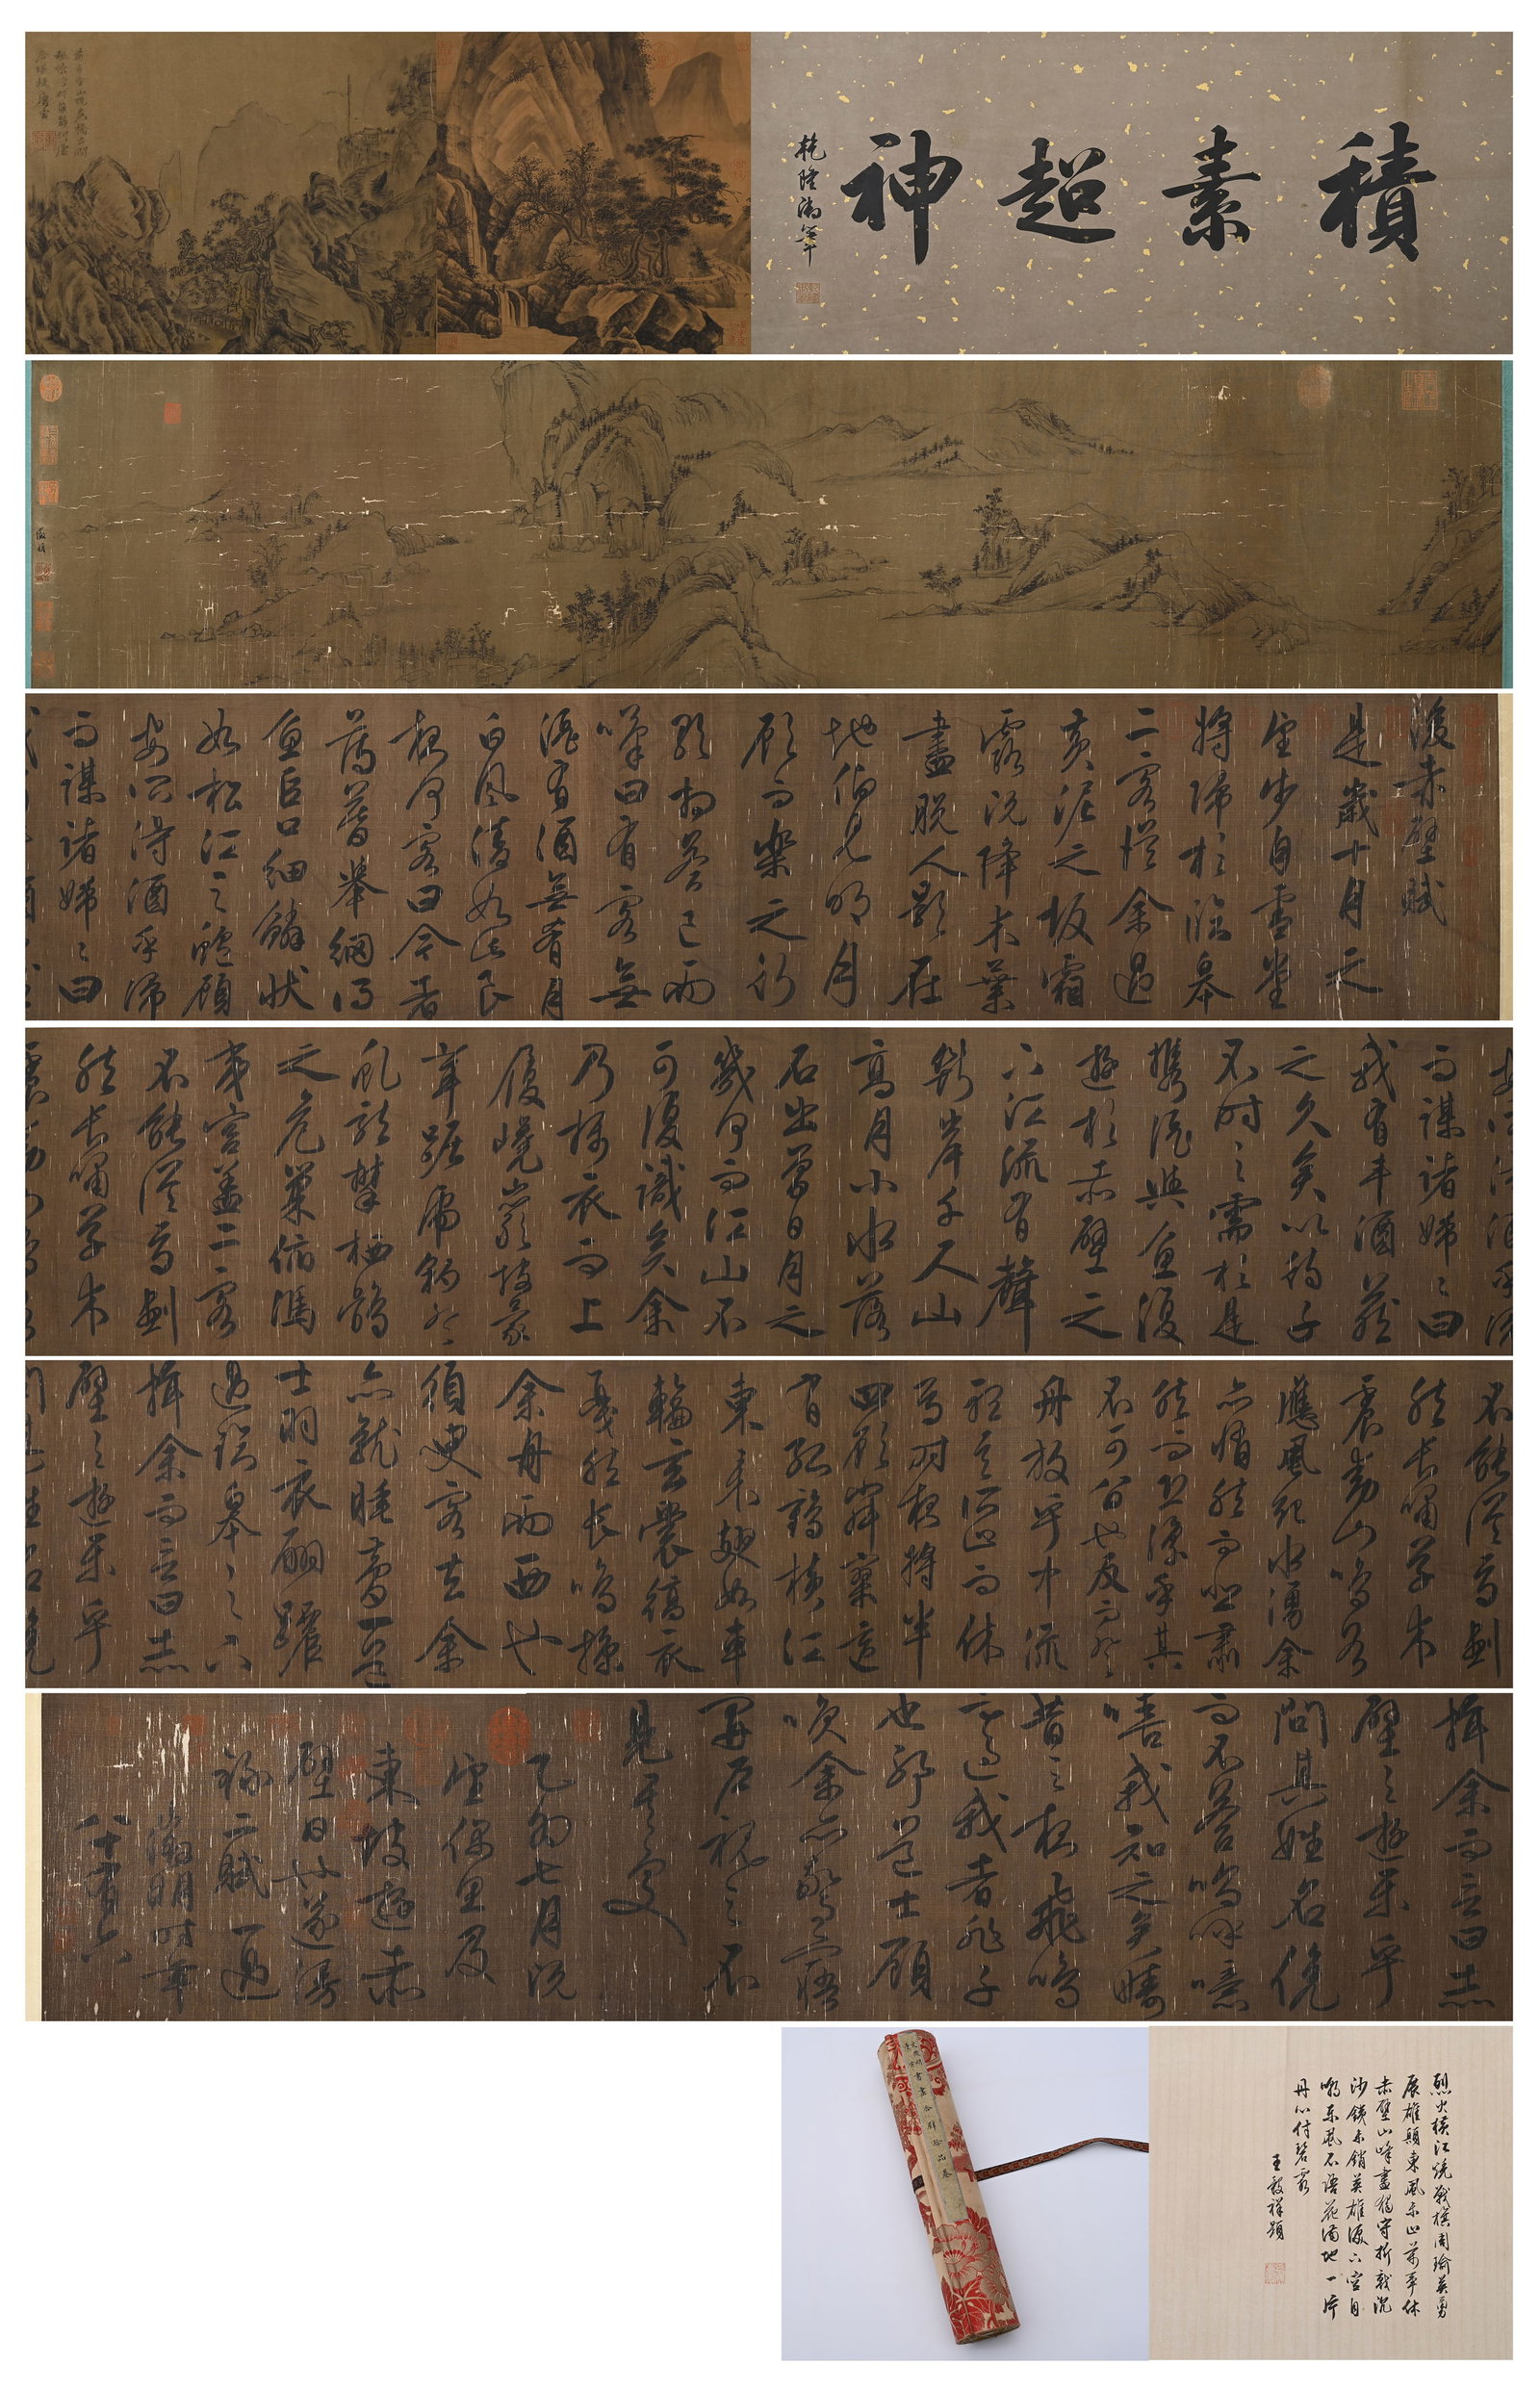 積素超神
乾隆御筆
徵明
後赤壁賦
是歲十月之
望步自雪堂
將歸於臨皋
二客從余過
黃泥之坂霜
露既降木葉
盡脫人影在
地仰見明月
顧而樂之行
歌相答已而
嘆曰有客無
酒有酒無肴月
白風清如此良
夜何客曰今者
薄暮舉網得
魚巨口細鱗狀
如松江之鱸顧
安所得酒乎歸
而謀諸婦〻曰
而謀諸婦〻曰
我有斗酒藏
之久矣以待子
不時之需於是
攜酒與魚復
遊於赤壁之
下江流有聲
斷岸千尺山
高月小水落
石出曾日月之
幾何而江山不
可復識矣余
乃攝衣而上
履巉巖披蒙
茸踞虎豹登
虬龍攀棲鶻
之危巢俯馮
夷宮蓋二客
不能從焉劃
然長嘯草木
不能從焉劃
然長嘯草木
震動山鳴谷
應風起水湧余
亦悄然而悲肅
然而恐凜乎其
不可留也反而登
舟放乎中流
聽其所止而休
焉時夜將半
四顧寂寥適
有孤鶴橫江
東來翅如車
輪玄裳縞衣
戛然長鳴掠
余舟而西也
須臾客去余
亦就睡夢一道
士羽衣翩躚
過臨皋之下
揖余而言曰赤
壁之遊樂乎
揖余而言曰赤
壁之遊樂乎
問其姓名俛
而不答嗚呼噫
嘻我知之矣疇
昔之夜飛鳴
而過我者非子
也耶道士顧
笑余亦驚寤
開戶視之不
見其處
乙卯七月既
望偶思及
東坡遊赤
壁日也遂漫
錄二賦一過
徵明時年
八十有六
文徵明書畫合璧珍品卷
烈火橫江燒戰旗周瑜英勇
展雄顏東風不止萬軍休
赤壁山峰盡獨守折戟沉
沙鐵未銷英雄淚下空自
嘲東風不語花滿地一片
丹心付碧霞
王穀祥題